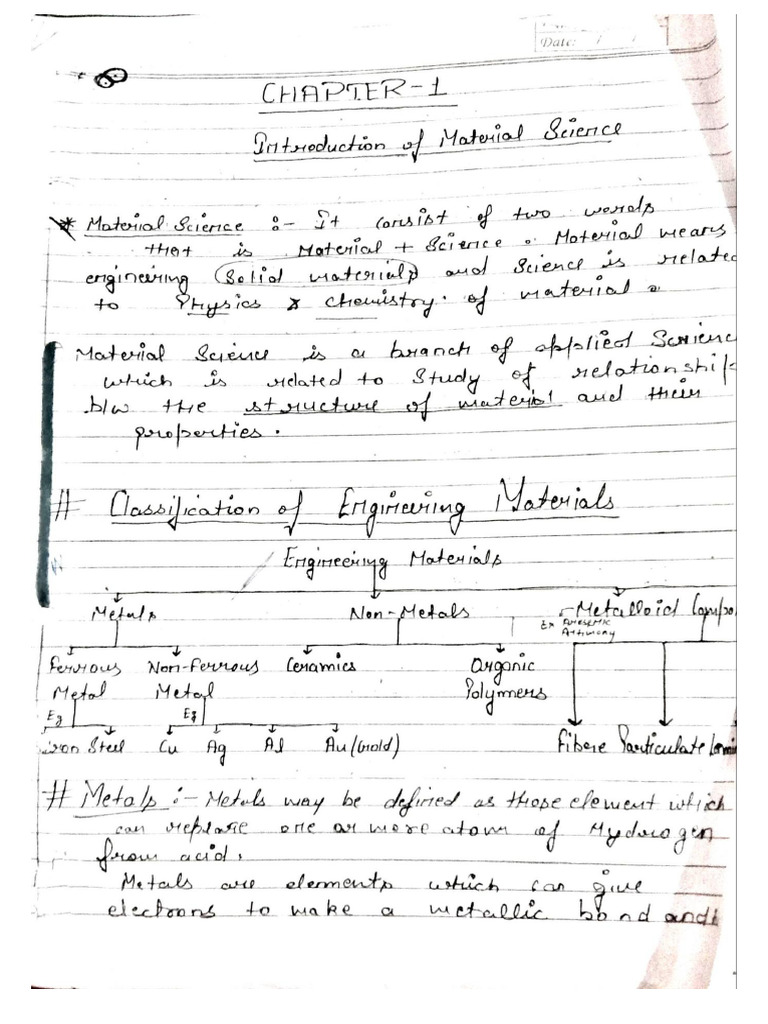 Date: / /
CHAPTER-1
Introduction of Material Science
* Material Science :- It consist of two words
that is Material + Science. Material means
engineering (Solid materials) and Science is relate
to Physics & Chemistry. of material.
Material Science is a branch of applied Science
which is related to Study of relationship
b/w the structure of material and their
properties.
# Classification of Engineering Materials
Engineering Materials
Metals Non-Metals Metalloid
Ex Antimony
Ferrous Non-Ferrous Ceramics Organic
Metal Metal Polymers
Eg Eg
iron Steel Cu Ag Al Au (Gold) Fibere Particulate
# Metals :- Metals may be defined as those element which
can replace one or more atom of Hydrogen
from acid.
Metals are elements which can give
electrons to make a metallic bond and